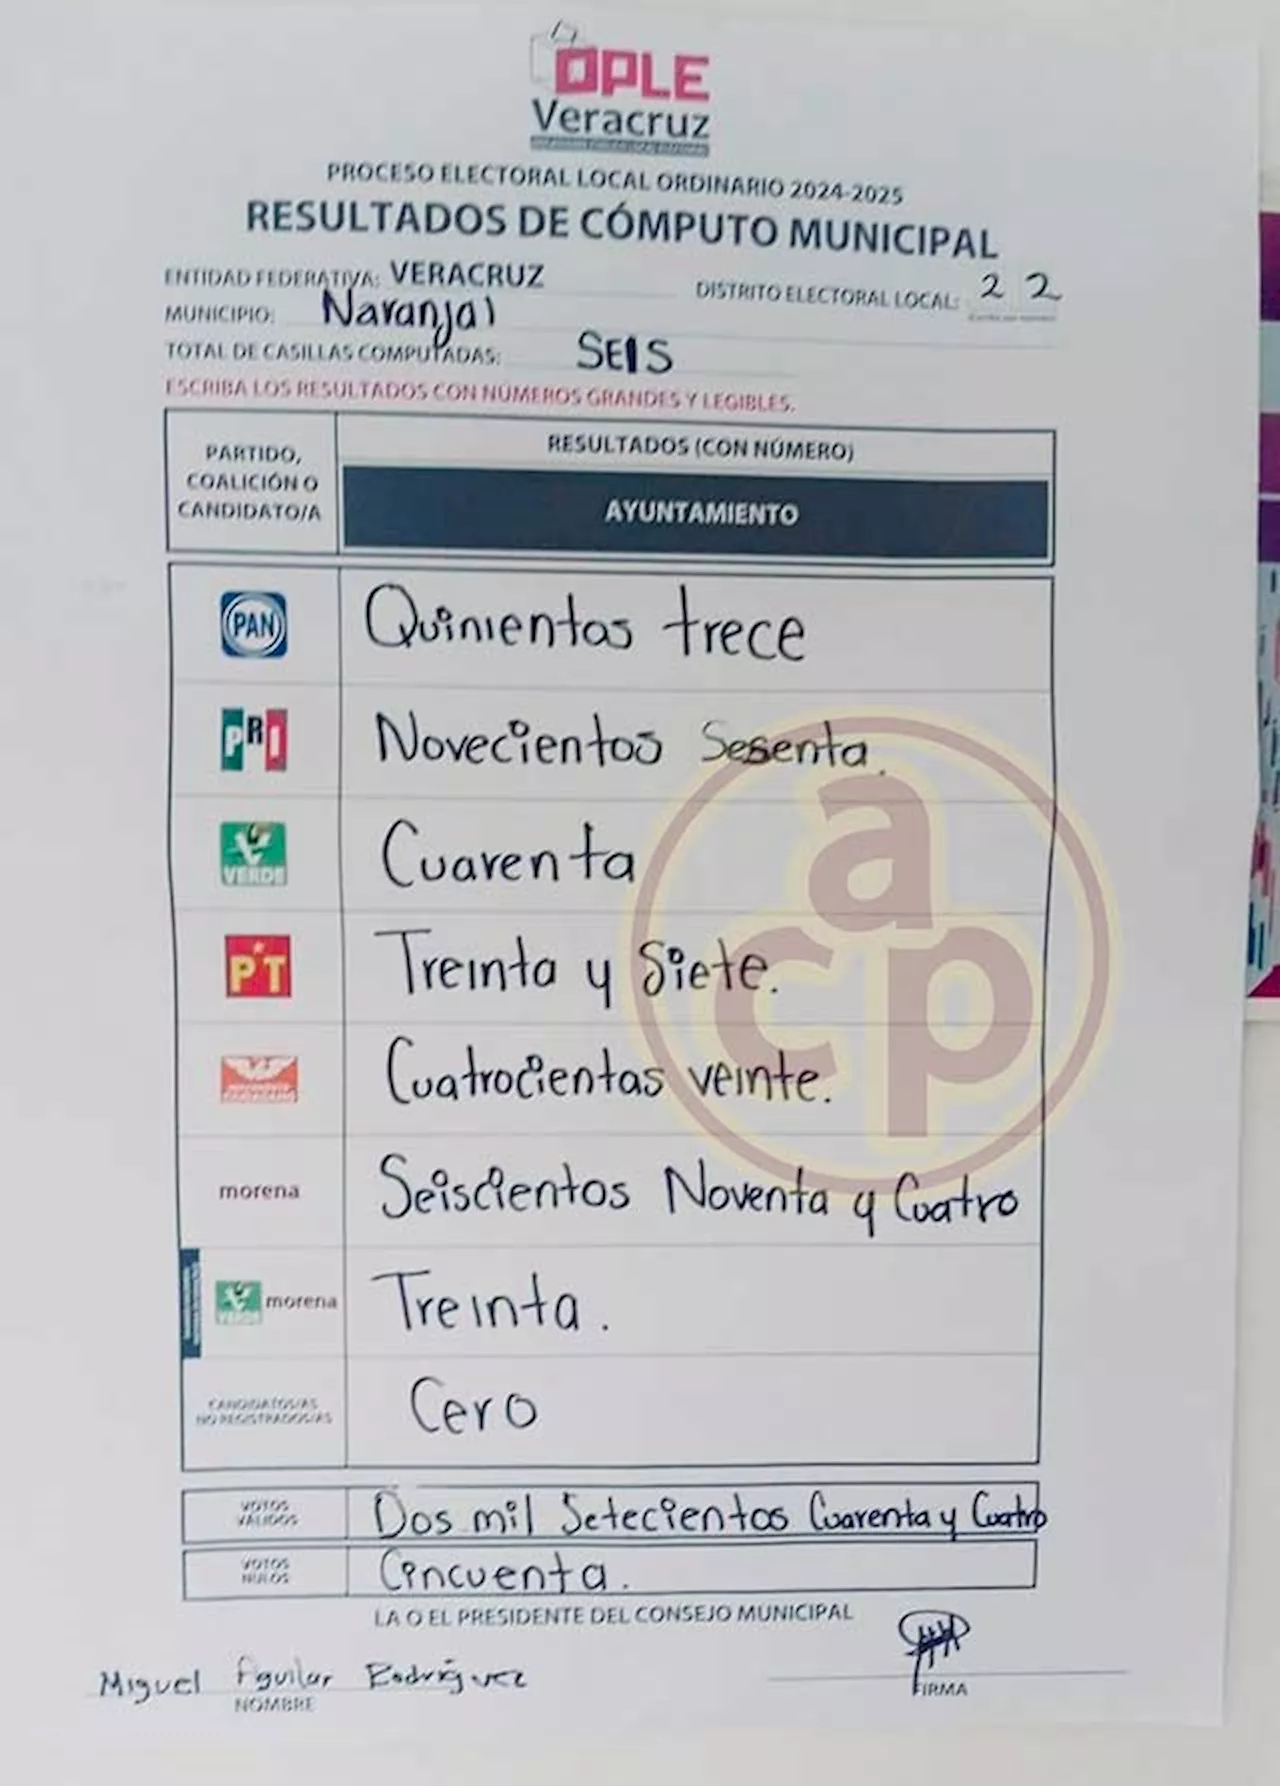 OPLE
Veracruz
PROCESO ELECTORAL LOCAL ORDINARIO 2024-2025
RESULTADOS DE CÓMPUTO MUNICIPAL
ENTIDAD FEDERATIVA: VERACRUZ
DISTRITO ELECTORAL LOCAL: 2 2
MUNICIPIO: Naranjal
TOTAL DE CASILLAS COMPUTADAS: SEIS
ESCRIBA LOS RESULTADOS CON NÚMEROS GRANDES Y LEGIBLES.
PARTIDO,
COALICIÓN O
CANDIDATO/A
RESULTADOS (CON NÚMERO)
AYUNTAMIENTO
PAN Quinientos trece
PRI Novecientos Sesenta.
VERDE Cuarenta
PT Treinta y Siete.
Cuatrocientas veinte.
morena Seiscientos Noventa y Cuatro
VERDE morena Treinta.
CANDIDATOS/AS
NO REGISTRADOS/AS
Cero
VOTOS
VÁLIDOS
Dos mil Setecientos Cuarenta y Cuatro
VOTOS
NULOS
Cincuenta.
LA O EL PRESIDENTE DEL CONSEJO MUNICIPAL
Miguel Aguilar Rodríguez
NOMBRE
FIRMA
a
cp